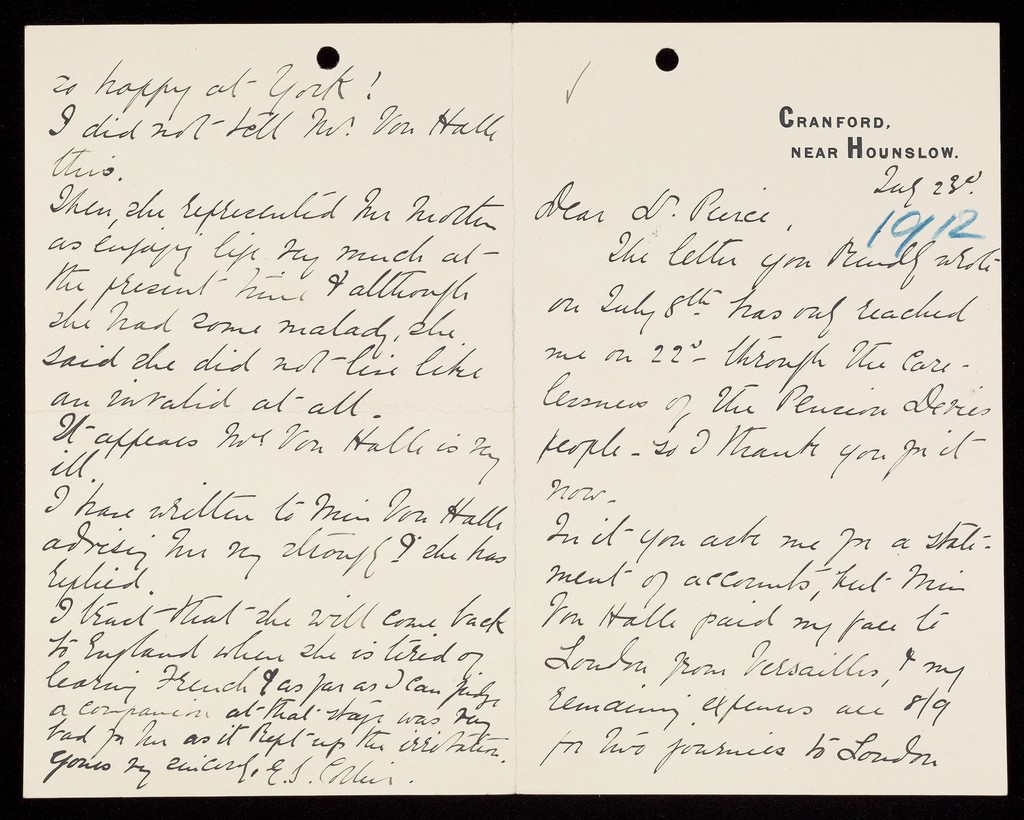 CRANFORD,
NEAR HOUNSLOW.
July 23rd.
1912
Dear Dr. Pierce,
The letter you kindly wrote
on July 8th has only reached
me on 22d - through the care-
lessness of the Pension
people - so I thank you for it
now -
In it you ask me for a state-
ment of accounts, but Miss
Von Halle paid my fare to
London from Versailles, & my
remaining expenses are 8/9
for two journies to London
so happy at York!
I did not tell Mrs. Von Halle
this.
Then, she represented her mother
as enjoying life very much at
the present time & although
she had some malady, she
said she did not live like
an invalid at all -
It appears Mrs Von Halle is very
ill.
I have written to Miss Von Halle
advising her very strongly & she has
replied.
I trust that she will come back
to England when she is tired of
learning French & as far as I can judge
a companion at that stage was very
bad for her as it kept up the irritation.
Yours very sincerely, E.S.